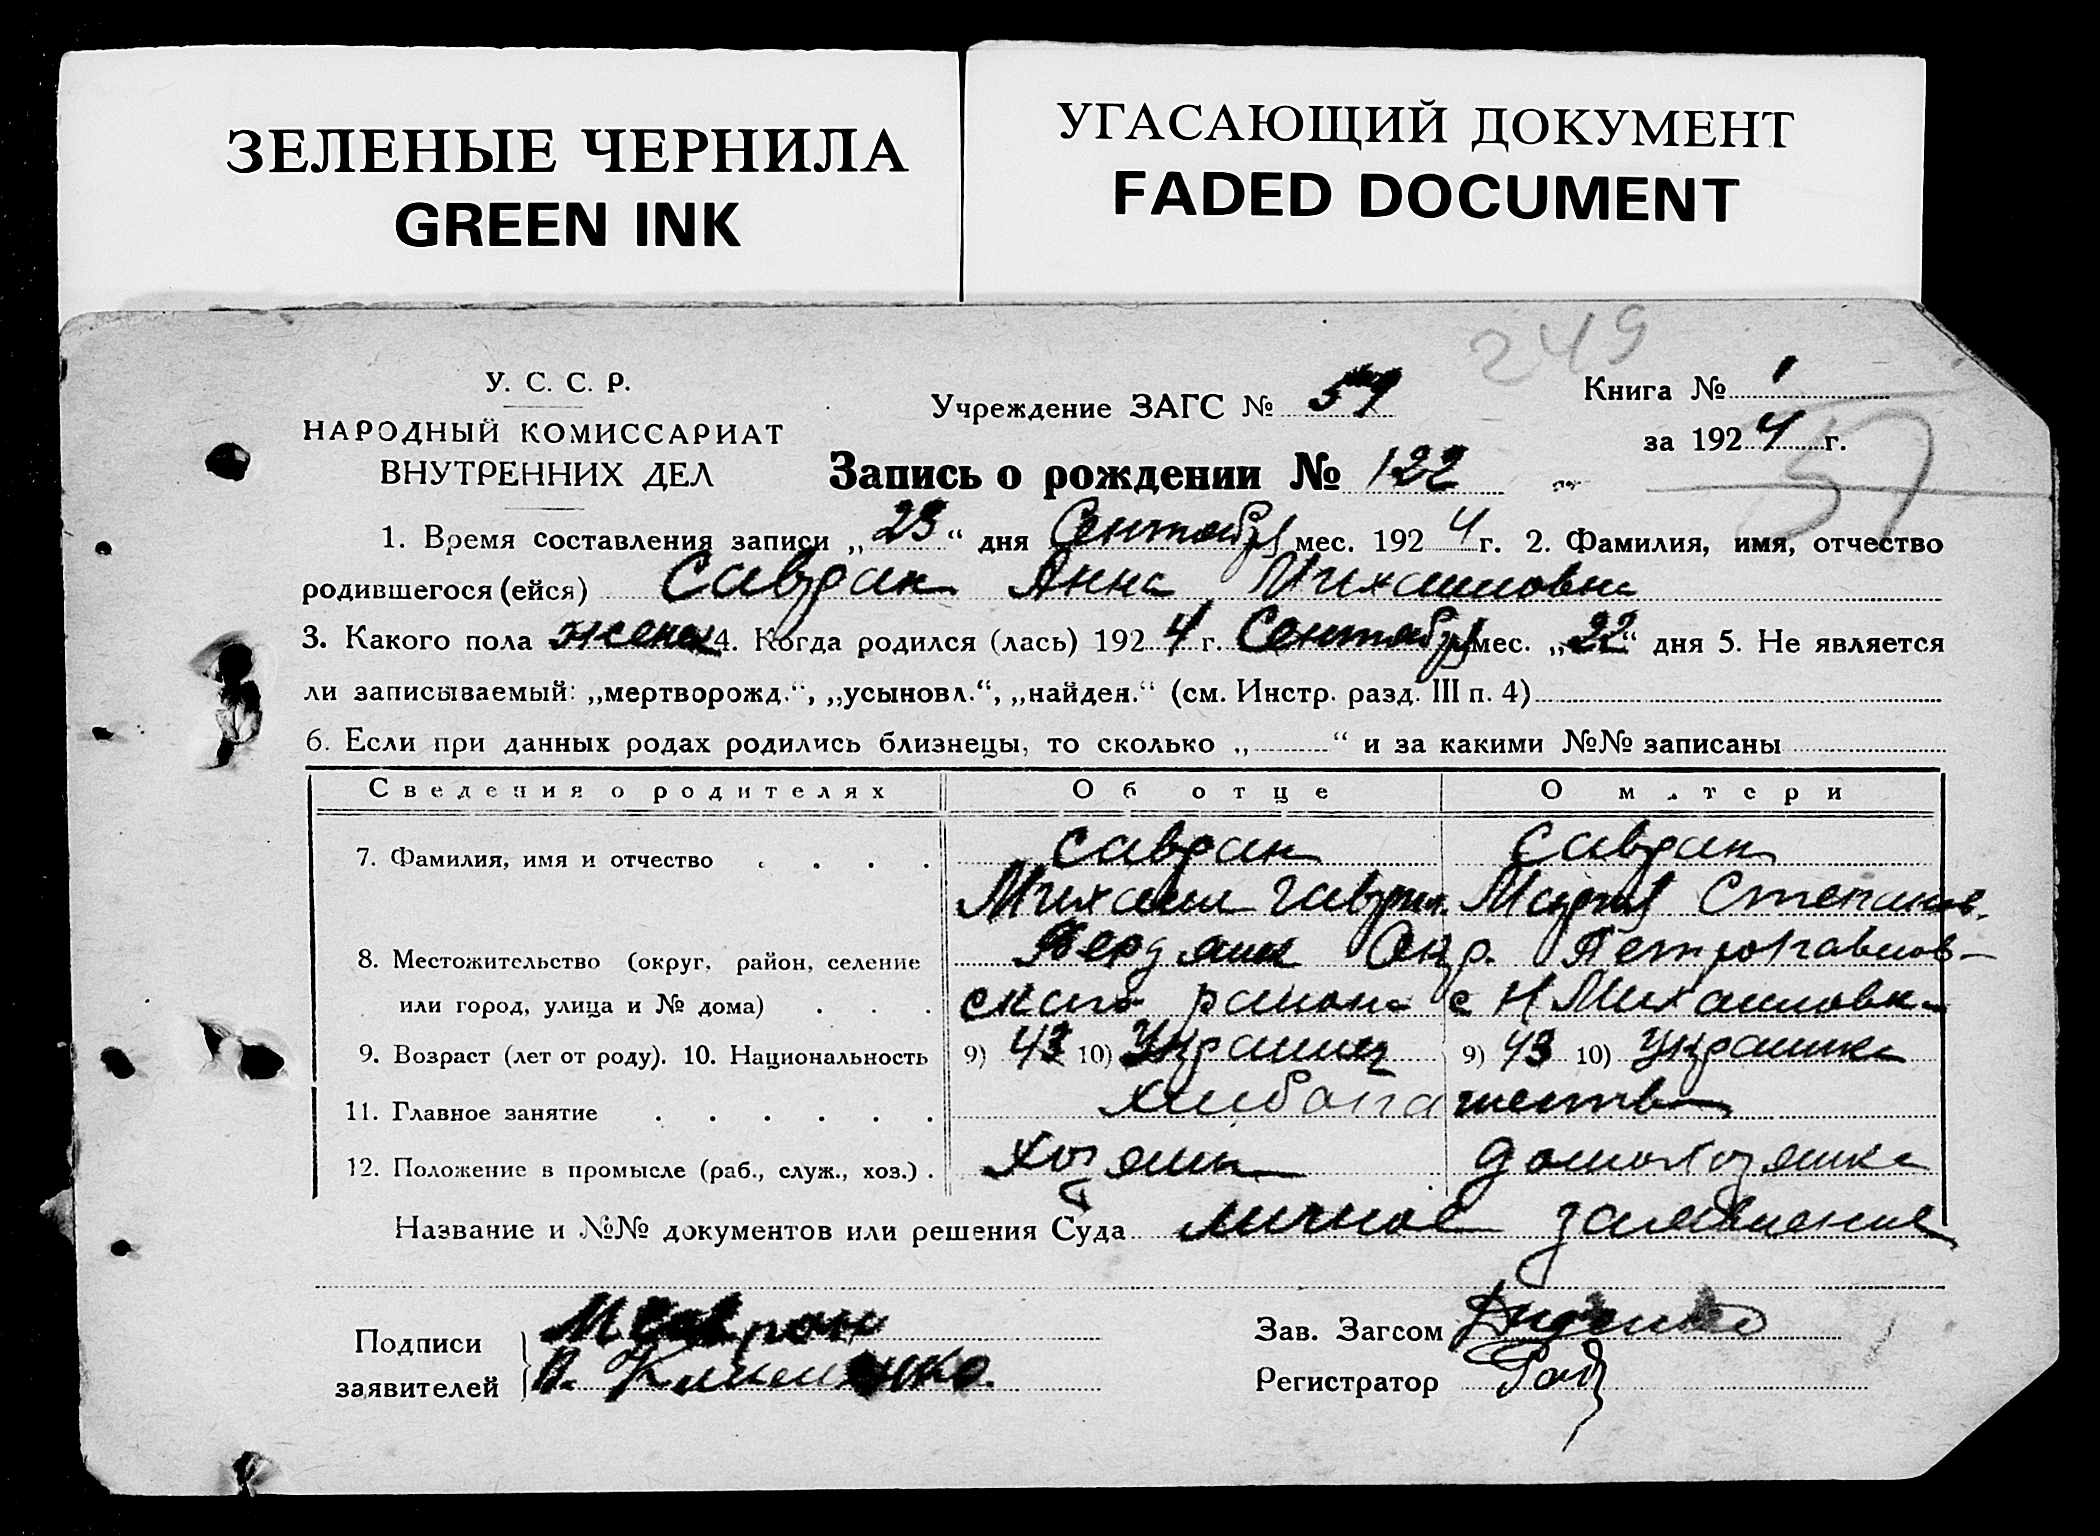 ЗЕЛЕНЫЕ ЧЕРНИЛА
GREEN INK
УГАСАЮЩИЙ ДОКУМЕНТ
FADED DOCUMENT
249
У. С. С. Р.
НАРОДНЫЙ КОМИССАРИАТ
ВНУТРЕННИХ ДЕЛ
Учреждение ЗАГС № 59
Книга № 1
за 1924 г.
57
Запись о рождении № 122
1. Время составления записи „23“ дня Сентября мес. 1924 г. 2. Фамилия, имя, отчество
родившегося (ейся) Савран Анна Михайловна
3. Какого пола женск 4. Когда родился (лась) 1924 г. Сентября мес. „22“ дня 5. Не является
ли записываемый: „мертворожд.“, „усыновл.“, „найден.“ (см. Инстр. разд. III п. 4)
6. Если при данных родах родились близнецы, то сколько „ “ и за какими №№ записаны
Сведения о родителях Об отце О матери
7. Фамилия, имя и отчество . . . . Савран Савран
Михаил Гаврил. Мария Степанов.
8. Местожительство (округ, район, селение Бердянск Окр. Петропавлов-
или город, улица и № дома) . . . ского района с Н Михайловка
9. Возраст (лет от роду). 10. Национальность 9) 43 10) Украинец 9) 43 10) Украинка
11. Главное занятие . . . . . . хлебопашество
12. Положение в промысле (раб., служ., хоз.) . хозяин домохозяйка
Название и №№ документов или решения Суда личное заявление
Подписи
заявителей
М Савран
Клименко.
Зав. Загсом
Регистратор